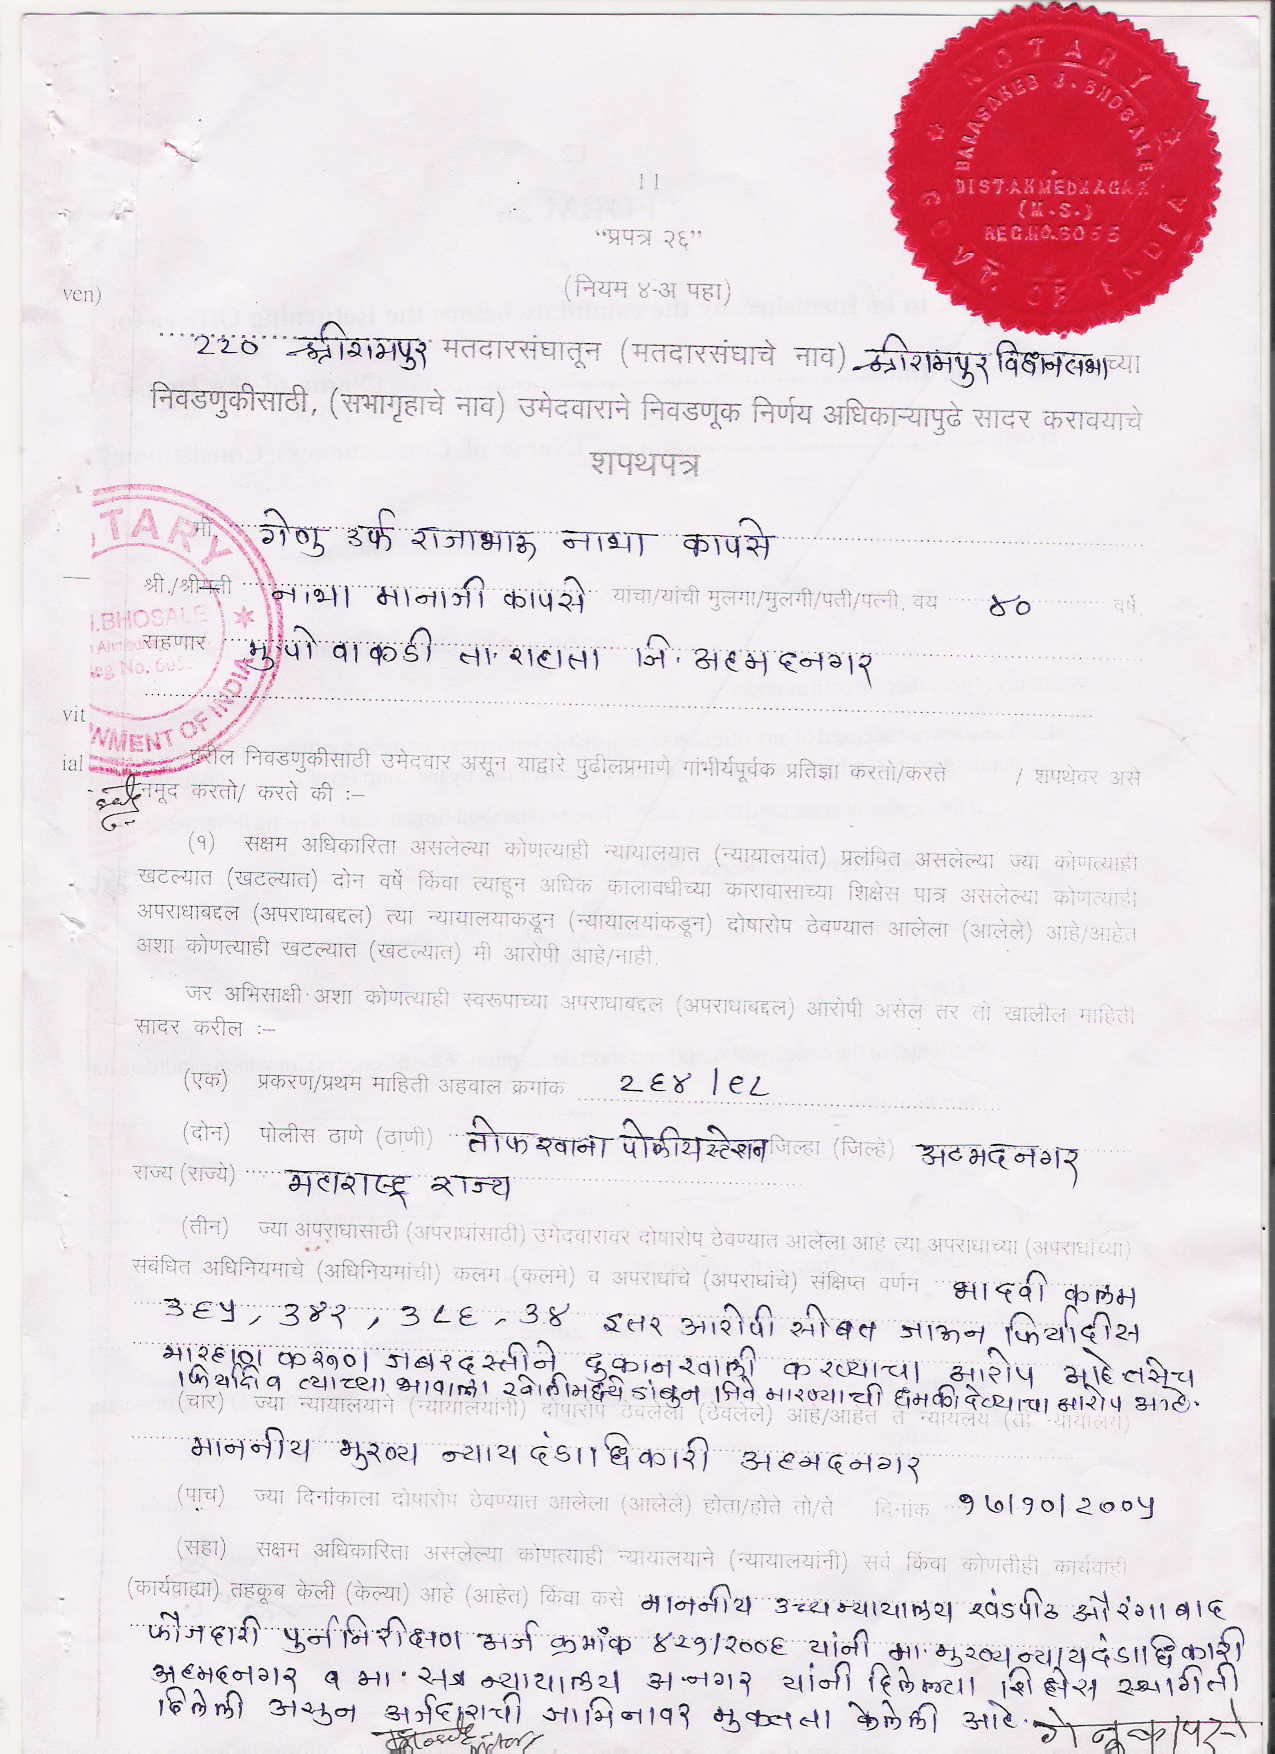 NOTARY
BALASAHEB J. BHOSALE
DIST AHMEDNAGAR
(M.S.)
REG.NO.6055
GOVT. OF INDIA
11
“प्रपत्र २६”
(नियम ४-अ पहा)
ven)
220 श्रीरामपुर मतदारसंघातून (मतदारसंघाचे नाव) श्रीरामपुर विधानसभाच्या
निवडणुकीसाठी, (सभागृहाचे नाव) उमेदवाराने निवडणूक निर्णय अधिकाऱ्यापुढे सादर करावयाचे
शपथपत्र
मी, गेणु उर्फ राजाभाऊ नाभा कापसे
श्री./श्रीमती नाभा मानाजी कापसे यांचा/यांची मुलगा/मुलगी/पती/पत्नी, वय ४० वर्षे,
राहणार मु पो वाकडी ता. राहाता जि. अहमदनगर
NOTARY
J.BHOSALE
Reg No. 605
GOVERNMENT OF INDIA
vit
ial
वरील निवडणुकीसाठी उमेदवार असून याद्वारे पुढीलप्रमाणे गांभीर्यपूर्वक प्रतिज्ञा करतो/करते / शपथेवर असे
नमूद करतो/ करते की :–
(१) सक्षम अधिकारिता असलेल्या कोणत्याही न्यायालयात (न्यायालयांत) प्रलंबित असलेल्या ज्या कोणत्याही
खटल्यात (खटल्यात) दोन वर्षे किंवा त्याहून अधिक कालावधीच्या कारावासाच्या शिक्षेस पात्र असलेल्या कोणत्याही
अपराधाबद्दल (अपराधाबद्दल) त्या न्यायालयाकडून (न्यायालयांकडून) दोषारोप ठेवण्यात आलेला (आलेले) आहे/आहेत
अशा कोणत्याही खटल्यात (खटल्यात) मी आरोपी आहे/नाही.
जर अभिसाक्षी अशा कोणत्याही स्वरूपाच्या अपराधाबद्दल (अपराधाबद्दल) आरोपी असेल तर तो खालील माहिती
सादर करील :–
(एक) प्रकरण/प्रथम माहिती अहवाल क्रमांक २६४/९८
(दोन) पोलीस ठाणे (ठाणी) तोफखाना पोलीसस्टेशन जिल्हा (जिल्हे) अहमदनगर
राज्य (राज्ये) महाराष्ट्र राज्य
(तीन) ज्या अपराधासाठी (अपराधांसाठी) उमेदवारावर दोषारोप ठेवण्यात आलेला आहे त्या अपराधाच्या (अपराधांच्या)
संबंधित अधिनियमाचे (अधिनियमांची) कलम (कलमे) व अपराधांचे (अपराधांचे) संक्षिप्त वर्णन भादवी कलम
३६५, ३४२, ३८६, ३४ इतर आरोपी सोबत जाऊन फिर्यादीस
मारहाण करून जबरदस्तीने दुकान खाली करण्याचा आरोप आहे तसेच
फिर्यादी व त्याच्या भावाला खोलीमध्ये डांबुन जिवे मारण्याची धमकी देण्याचा आरोप आहे.
(चार) ज्या न्यायालयाने (न्यायालयांनी) दोषारोप ठेवलेला (ठेवलेले) आहे/आहेत ते न्यायालय (ती न्यायालये)
माननीय मुख्य न्यायदंडाधिकारी अहमदनगर
(पाच) ज्या दिनांकाला दोषारोप ठेवण्यात आलेला (आलेले) होता/होते तो/ते दिनांक १७/१०/२००५
(सहा) सक्षम अधिकारिता असलेल्या कोणत्याही न्यायालयाने (न्यायालयांनी) सर्व किंवा कोणतीही कार्यवाही
(कार्यवाह्या) तहकूब केली (केल्या) आहे (आहेत) किंवा कसे माननीय उच्चन्यायालय खंडपीठ औरंगाबाद
फौजदारी पुर्ननिरीक्षण अर्ज क्रमांक ४२१/२००६ यांनी मा. मुख्य न्यायदंडाधिकारी
अहमदनगर व मा. सत्र न्यायालय अ.नगर यांनी दिलेल्या शिक्षेस स्थगिती
दिलेली असुन अर्जदाराची जामिनावर मुक्तता केलेली आहे.
गेनू कापसे